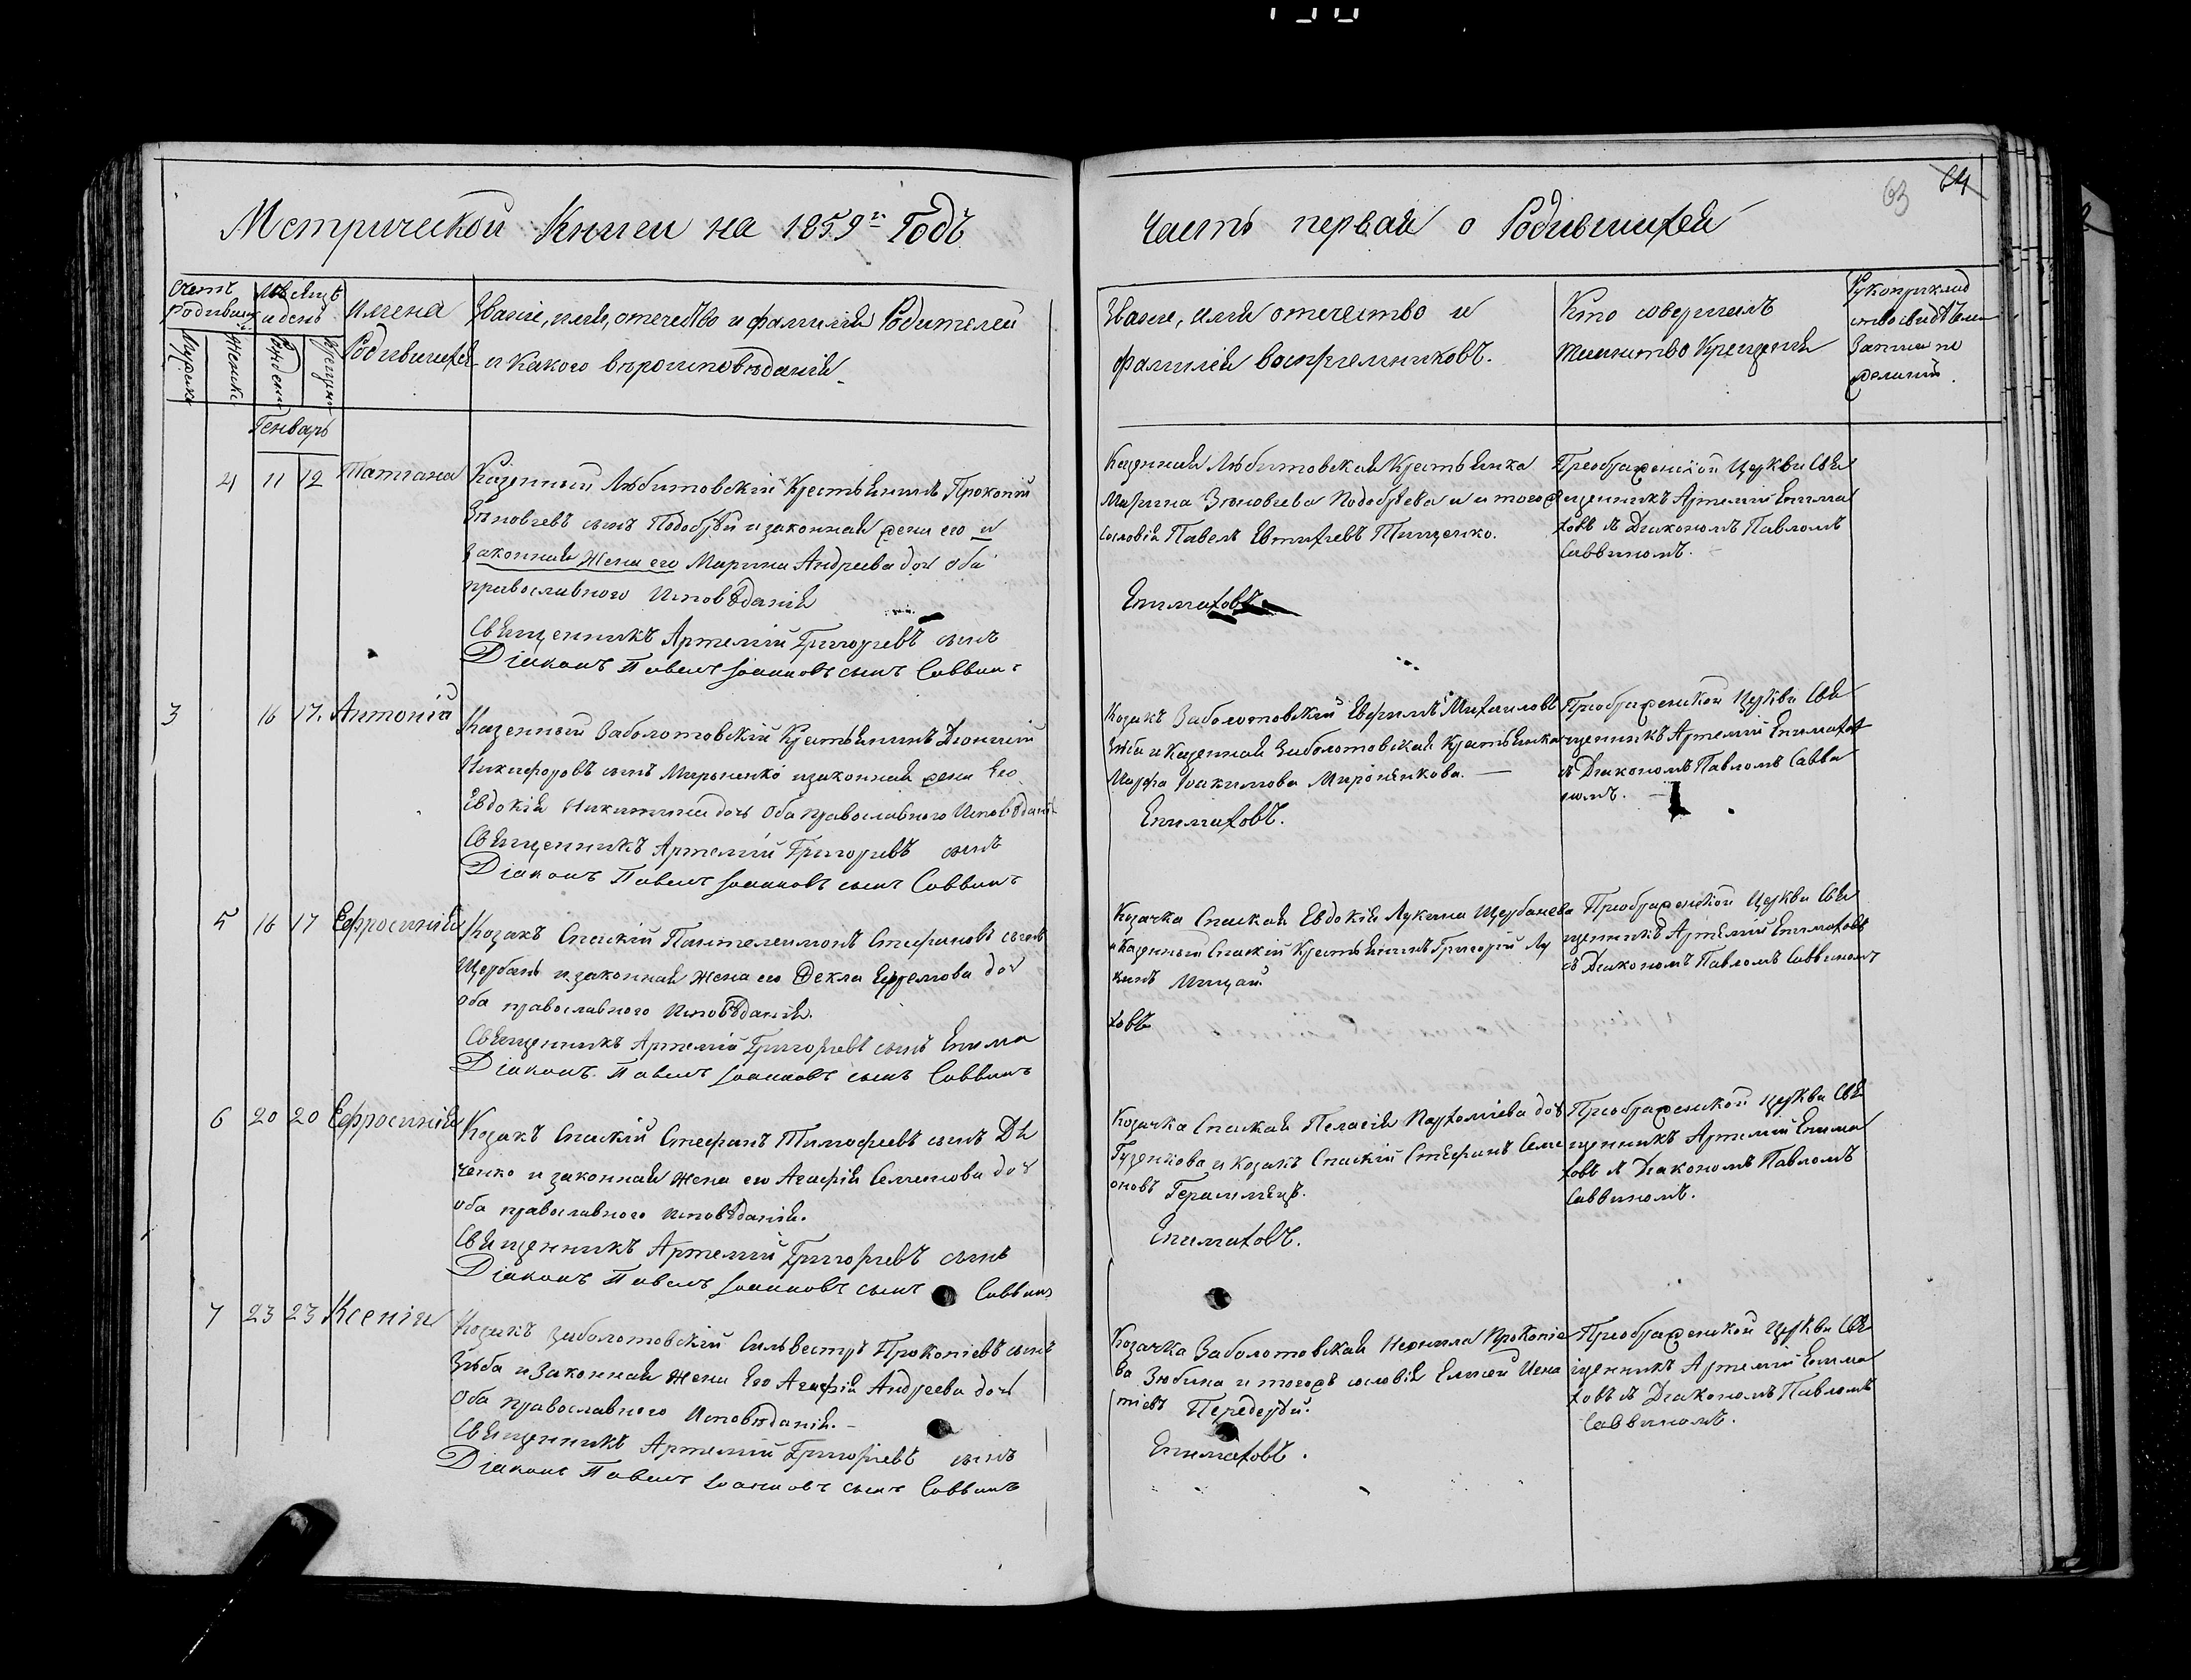 63 64
Метрической Книги на 1859й Годъ
Часть первая о Родившихся
Счетъ родивших
Мѣсяцъ и день
Имена Родившихся
Званіе, имя, отечество и фамилія Родителей
и Какого вѣроисповѣданія
Мужеска
Женска
Рожденія
Крещенія
Званіе, имя отечество и
фамилія воспріемниковъ.
Кто совершилъ
таинство Крещенія
Рукоприклад
ство свидѣтелей
записи по
желанію.
Генварь
4 11 12 Татіана
Казенный Любитовскій Крестьянинъ Прокопій
Зѣновіевъ сынъ Подобрѣй и законная жена его и
законная Жена его Марина Андреева доч оба
православного Исповѣданія
Священникъ Артемій Григорьевъ сынъ
Діаконъ Павелъ Іоанновъ сынъ Саввинъ
Казенная Любитовская Крестьянка
Марина Зѣновіева Подобрѣева и и тогож
сословія Павелъ Евтихіевъ Тищенко.
Епимаховъ
Преображенской Церкви Свя
щенникъ Артемій Епима
ховъ съ Діакономъ Павломъ
Саввиномъ.
3 16 17. Антоній
Казенный Заболотовскій Крестьянинъ Діонисій
Никифоровъ сынъ Мироненко изаконная жена Его
Евдокія Никитина дочь Оба православного Исповѣданія
Священникъ Артемій Григорьевъ сынъ
Діаконъ Павелъ Іоанновъ сынъ Саввинъ
Козакъ Заболотовскій Ефимъ Михаиловъ
Зюба и Казенная Заболотовская Крестьянка
Марфа Іоакимова Миронѣнкова.
Епимаховъ.
Преображенской Церкви Свя
щенникъ Артемій Епимахов
съ Діакономъ Павломъ Савви
номъ.
5 16 17 Ефросинія
Козакъ Спаскій Пантелеимонъ Стефановъ сынъ
Щербань и законная Жена его Фекла Ефремова доч
оба православного Исповѣданія.
Священникъ Артемій Григорьевъ сынъ Епима
Діаконъ Павелъ Іоанновъ сынъ Саввинъ
Козачка Спаская Евдокія Лукина Щербанева
и Казенный Спаскій Крестьянинъ Григорій Лу
кинъ Мищай
ховъ
Преображенской Церкви Свя
щенникъ Артемій Епимаховъ
съ Діакономъ Павломъ Саввиномъ
6 20 20 Ефросинія
Козакъ Спаскій Стефанъ Тимофеевъ сынъ Дя
ченко и законная Жена его Агафія Семенова доч
оба православного Исповѣданія.
Священникъ Артемій Григорьевъ сынъ
Діаконъ Павелъ Іоанновъ сынъ Саввинъ
Козачка Спаская Пелагія Парфоміева доч
Гузенкова и Козакъ Спаскій Стефанъ Семе
оновъ Герасимѣцъ.
Епимаховъ.
Преображенской Церкви Свя
щенникъ Артемій Епима
ховъ съ Діакономъ Павломъ
Саввиномъ.
7 23 23 Ксенія
Козакъ Заболотовскій Сильвестръ Прокопіевъ сынъ
Зюба и Законная Жена Его Агафія Андреева доч
Оба Православного Исповѣданія.
Священникъ Артемій Григорьевъ сынъ
Діаконъ Павелъ Іоанновъ сынъ Саввинъ
Козачка Заболотовская Неонила Прокопіе
ва Зюбина и тогожъ сословія Елисей Игна
тіевъ Передерѣй.
Епимаховъ.
Преображенской Церкви Свя
щенникъ Артемій Епима
ховъ съ Діакономъ Павломъ
Саввиномъ.